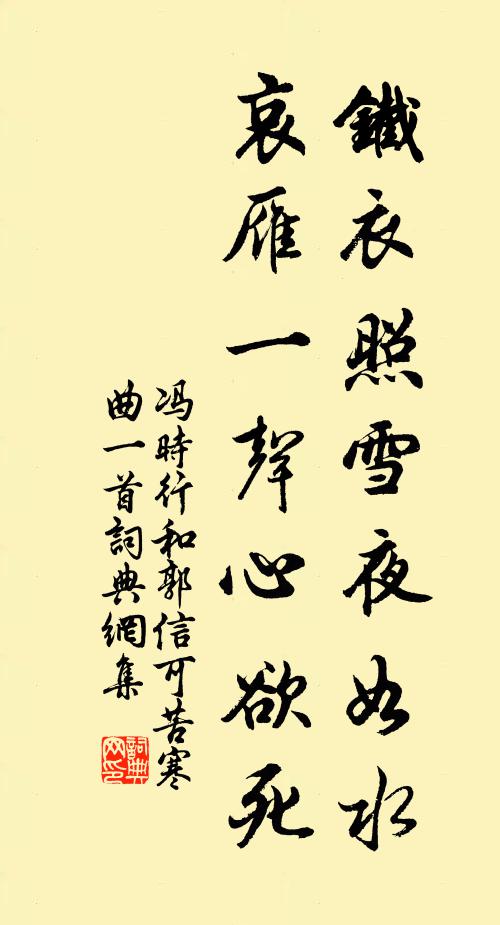 鐵衣照雪夜如水
哀雁一聲心欲死
冯時行和郭信可苦寒
曲一首詞典網集
詞典
网印